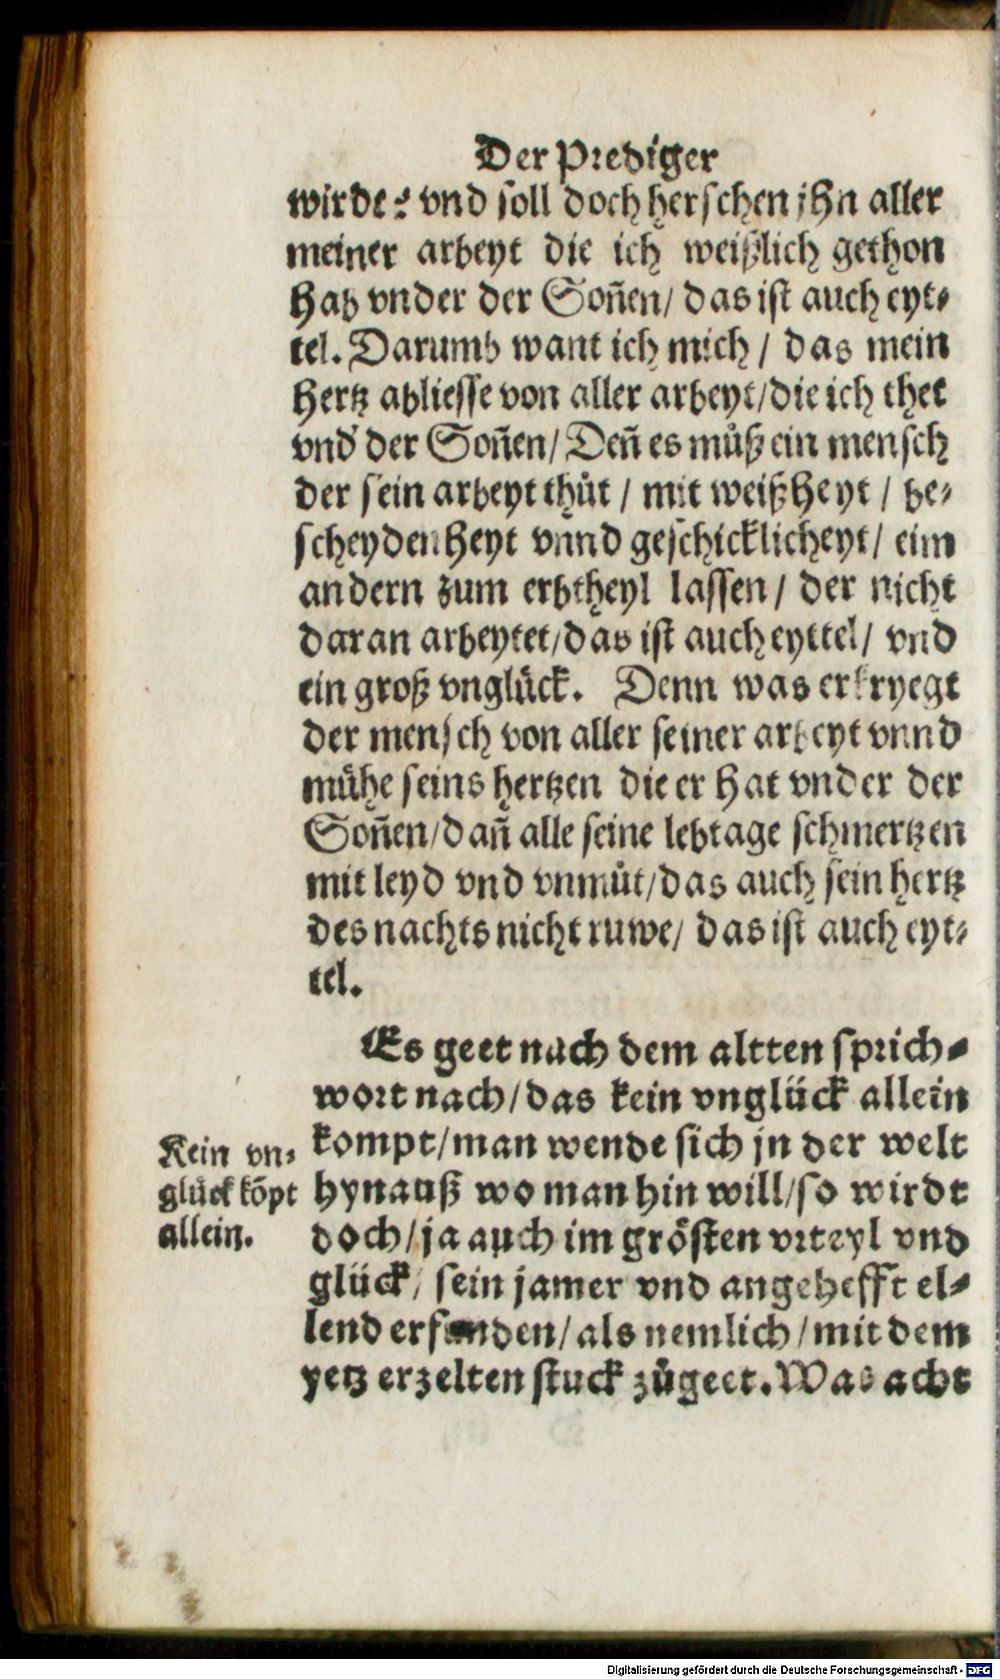 Der Prediger
wirde? vnd soll doch herschen jhn aller
meiner arbeyt die ich weißlich gethon
hab vnder der Soñen/ das ist auch eyt⸗
tel. Darumb want ich mich / das mein
hertz abliesse von aller arbeyt/die ich thet
vnd der Soñen/ Deñ es můß ein mensch
der sein arbeyt thůt / mit weißheyt / be⸗
scheydenheyt vnnd geschicklicheyt/ eim
andern zum erbtheyl lassen / der nicht
daran arbeytet/das ist auch eyttel/ vnd
ein groß vnglück. Denn was erkryegt
der mensch von aller seiner arbeyt vnnd
mühe seins hertzen die er hat vnder der
Soñen/dañ alle seine lebtage schmertzen
mit leyd vnd vnmůt/das auch sein hertz
des nachts nicht ruwe/ das ist auch eyt⸗
tel.
Es geet nach dem altten sprich⸗
wort nach/das kein vnglück allein
kompt/man wende sich jn der welt
hynauß wo man hin will/so wirdt
doch/ja auch im grösten vrteyl vnd
glück/ sein jamer vnd angehefft el⸗
lend erfunden/als nemlich/mit dem
yetz erzelten stuck zůgeet. Was acht
Kein vn⸗
glück kõpt
allein.
Digitalisierung gefördert durch die Deutsche Forschungsgemeinschaft - DFG